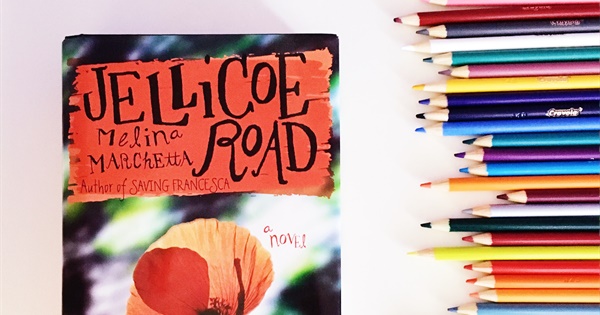 JELLiCOE
Melina
MARCHETTA
ROAD
Author of SAVING FRANCESCA
a
NOVEL
Crayola